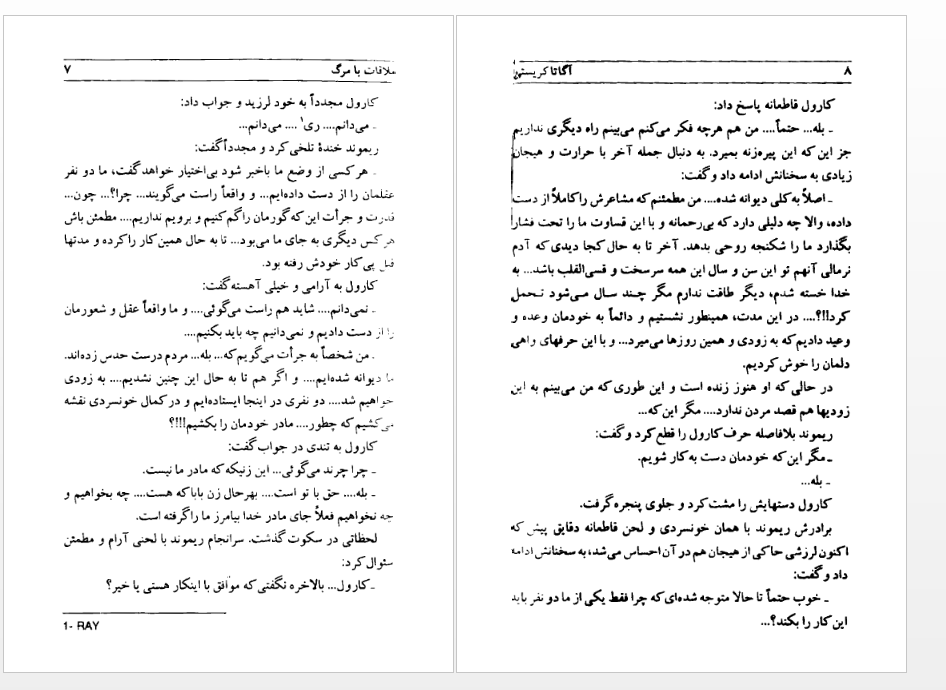 ملاقات با مرگ ۷
کارول مجدداً به خود لرزید و جواب داد:
ـ می‌دانم.... ری۱ .... می‌دانم...
ریموند خندهٔ تلخی کرد و مجدداً گفت:
ـ هر کسی از وضع ما باخبر شود بی‌اختیار خواهد گفت، ما دو نفر
عقلمان را از دست داده‌ایم... و واقعاً راست می‌گویند... چرا؟... چون...
قدرت و جرأت این که گورمان را گم کنیم و برویم نداریم.... مطمئن باش
هر کس دیگری به جای ما می‌بود... تا به حال همین کار را کرده و مدتها
قبل پی کار خودش رفته بود.
کارول به آرامی و خیلی آهسته گفت:
ـ نمی‌دانم.... شاید هم راست می‌گوئی.... و ما واقعاً عقل و شعورمان
را از دست دادیم و نمی‌دانیم چه باید بکنیم....
ـ من شخصاً به جرأت می‌گویم که... بله... مردم درست حدس زده‌اند.
ما دیوانه شده‌ایم.... و اگر هم تا به حال این چنین نشدیم.... به زودی
خواهیم شد.... دو نفری در اینجا ایستاده‌ایم و در کمال خونسردی نقشه
می‌کشیم که چطور.... مادر خودمان را بکشیم!!!؟
کارول به تندی در جواب گفت:
ـ چرا چرند می‌گوئی... این زنیکه که مادر ما نیست.
ـ بله.... حق با تو است.... بهرحال زن بابا که هست.... چه بخواهیم و
چه نخواهیم فعلاً جای مادر خدا بیامرز ما را گرفته است.
لحظاتی در سکوت گذشت. سرانجام ریموند با لحنی آرام و مطمئن
سئوال کرد:
ـ کارول... بالاخره نگفتی که موافق با اینکار هستی یا خیر؟
1- RAY
۸ آگاتا کریستی
کارول قاطعانه پاسخ داد:
ـ بله... حتماً.... من هم هرچه فکر می‌کنم می‌بینم راه دیگری نداریم
جز این که این پیره‌زنه بمیرد. به دنبال جمله آخر با حرارت و هیجان
زیادی به سخنانش ادامه داد و گفت:
ـ اصلاً به کلی دیوانه شده.... من مطمئنم که مشاعرش را کاملاً از دست
داده، والا چه دلیلی دارد که بی‌رحمانه و با این قساوت ما را تحت فشار
بگذارد ما را شکنجه روحی بدهد. آخر تا به حال کجا دیدی که آدم
نرمالی آنهم تو این سن و سال این همه سرسخت و قسی‌القلب باشد... به
خدا خسته شدم، دیگر طاقت ندارم مگر چند سال می‌شود تحمل
کرد!!؟.... در این مدت، همینطور نشستیم و دائماً به خودمان وعده و
وعید دادیم که به زودی و همین روزها می‌میرد... و با این حرفهای واهی
دلمان را خوش کردیم.
در حالی که او هنوز زنده است و این طوری که من می‌بینم به این
زودیها هم قصد مردن ندارد.... مگر این که...
ریموند بلافاصله حرف کارول را قطع کرد و گفت:
ـ مگر این که خودمان دست به کار شویم.
ـ بله...
کارول دستهایش را مشت کرد و جلوی پنجره گرفت.
برادرش ریموند با همان خونسردی و لحن قاطعانه دقایق پیش که
اکنون لرزشی حاکی از هیجان هم در آن احساس می‌شد، به سخنانش ادامه
داد و گفت:
ـ خوب حتماً تا حالا متوجه شده‌ای که چرا فقط یکی از ما دو نفر باید
این کار را بکند؟...